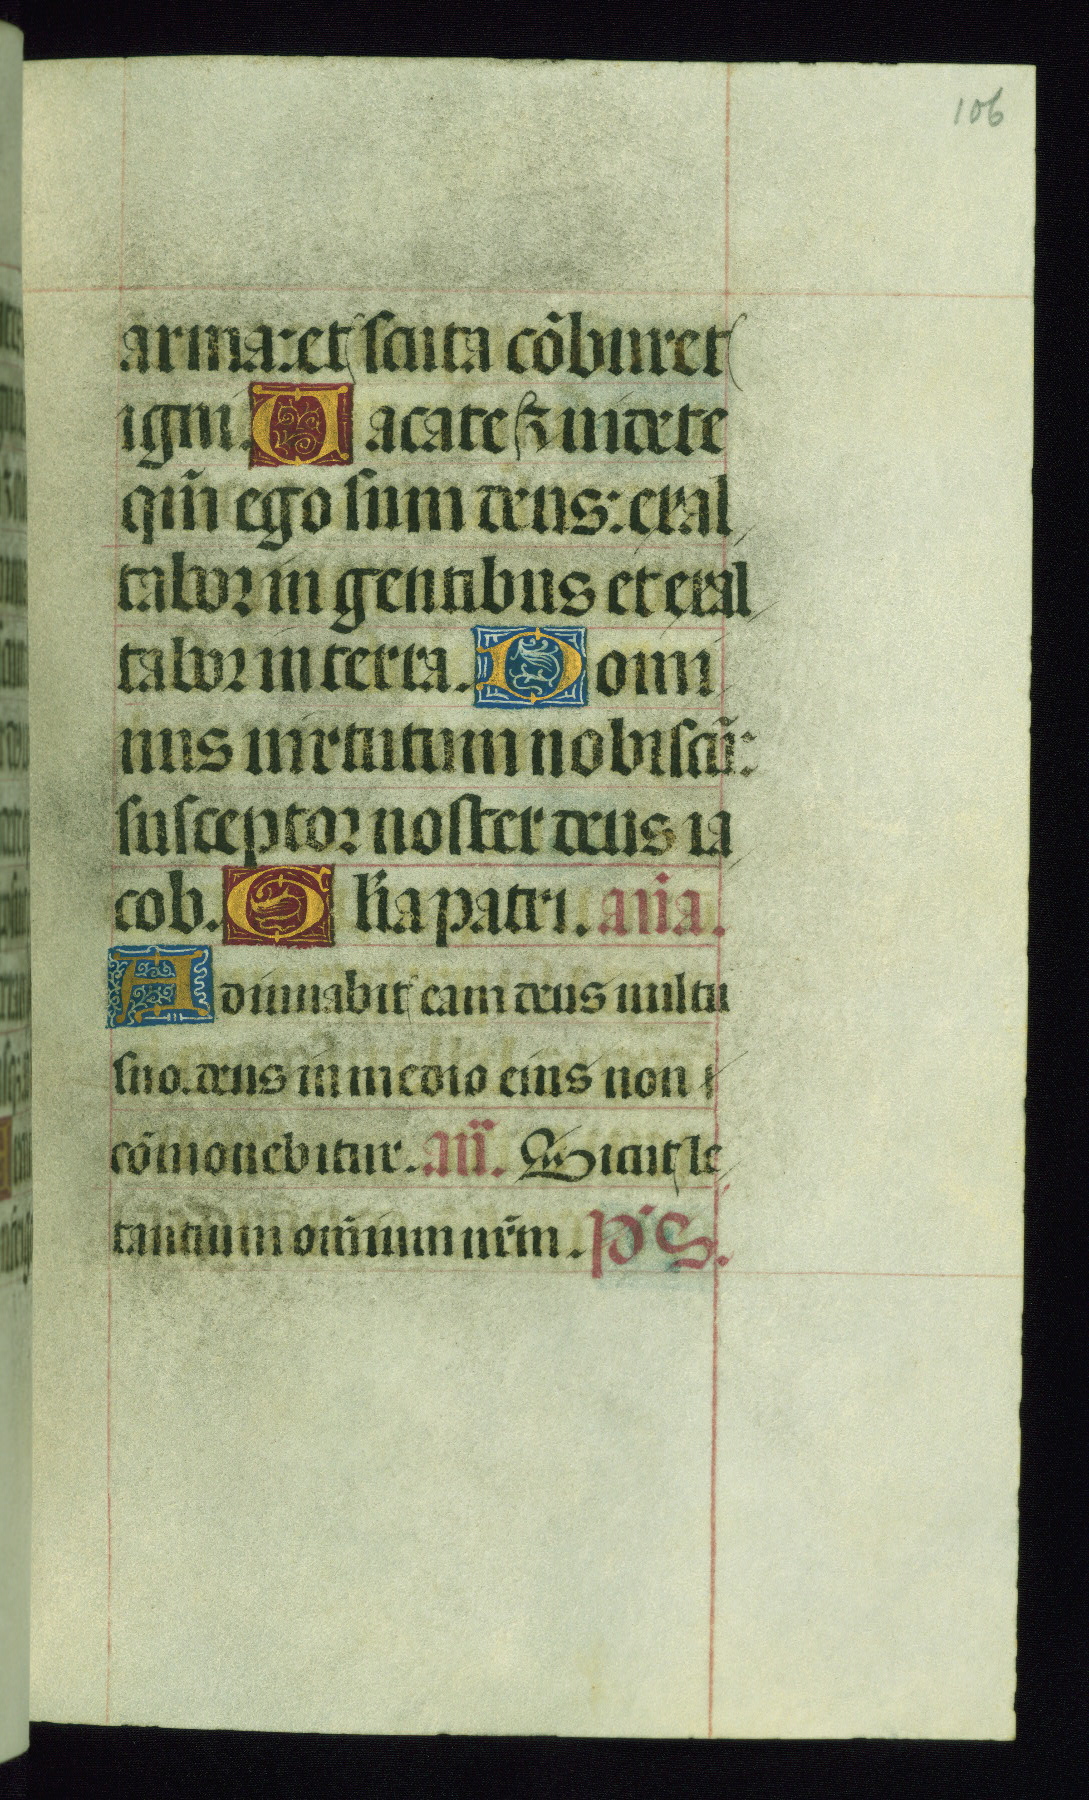 106
arma: et scuta cõburet
igni. Uacate ⁊ uidete
qm̃ ego sum deus: exal
tabor in gentibus et exal
tabor in terra. Domi
nus uirtutum nobiscũ:
susceptor noster deus ia
cob. Gl̃ia patri. añа.
Adiuuabit eam deus uultu
suo. deus in medio eius non
cõmouebitur. añ. Sicut le
tantium om̃ium nr̃m. p̃s.